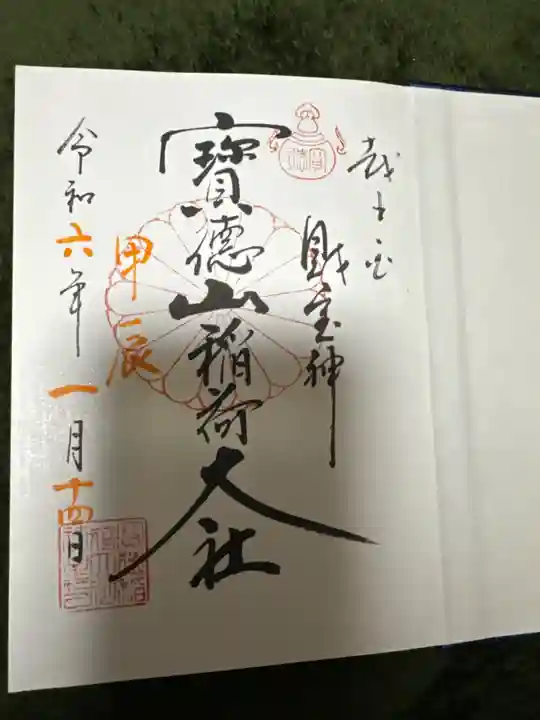 財宝神
寳徳山稲荷大社
甲辰
令和六年一月十四日